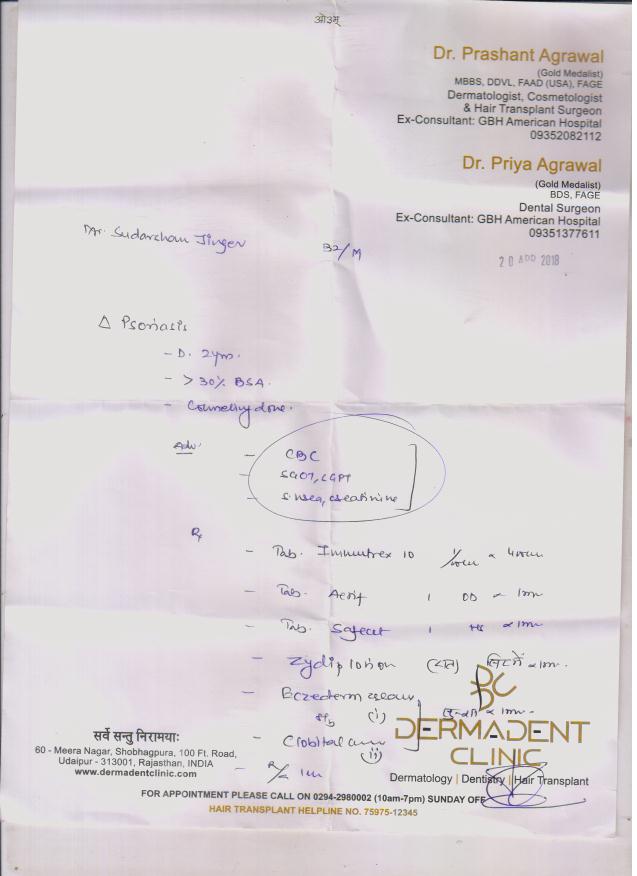 ओ३म्
Dr. Prashant Agrawal
(Gold Medalist)
MBBS, DDVL, FAAD (USA), FAGE
Dermatologist, Cosmetologist
& Hair Transplant Surgeon
Ex-Consultant: GBH American Hospital
09352082112
Dr. Priya Agrawal
(Gold Medalist)
BDS, FAGE
Dental Surgeon
Ex-Consultant: GBH American Hospital
09351377611
Mr. Sudarshan Jinger 32/M
20 APR 2018
Δ Psoriasis
- D. 2yrs.
- > 30% BSA.
- Counselling done.
Adv.
- CBC
- SGOT, SGPT
- S. urea, creatinine
Rx
- Tab. Immutrex 10
- Tab. 1 OD
- Tab. 1 HS
- Zydip lotion
- Eczederm cream (i)
- (ii)
DERMADENT
CLINIC
Dermatology | Dentistry | Hair Transplant
सर्वे सन्तु निरामयाः
60 - Meera Nagar, Shobhagpura, 100 Ft. Road,
Udaipur - 313001, Rajasthan, INDIA
www.dermadentclinic.com
FOR APPOINTMENT PLEASE CALL ON 0294-2980002 (10am-7pm) SUNDAY OFF
HAIR TRANSPLANT HELPLINE NO. 75975-12345